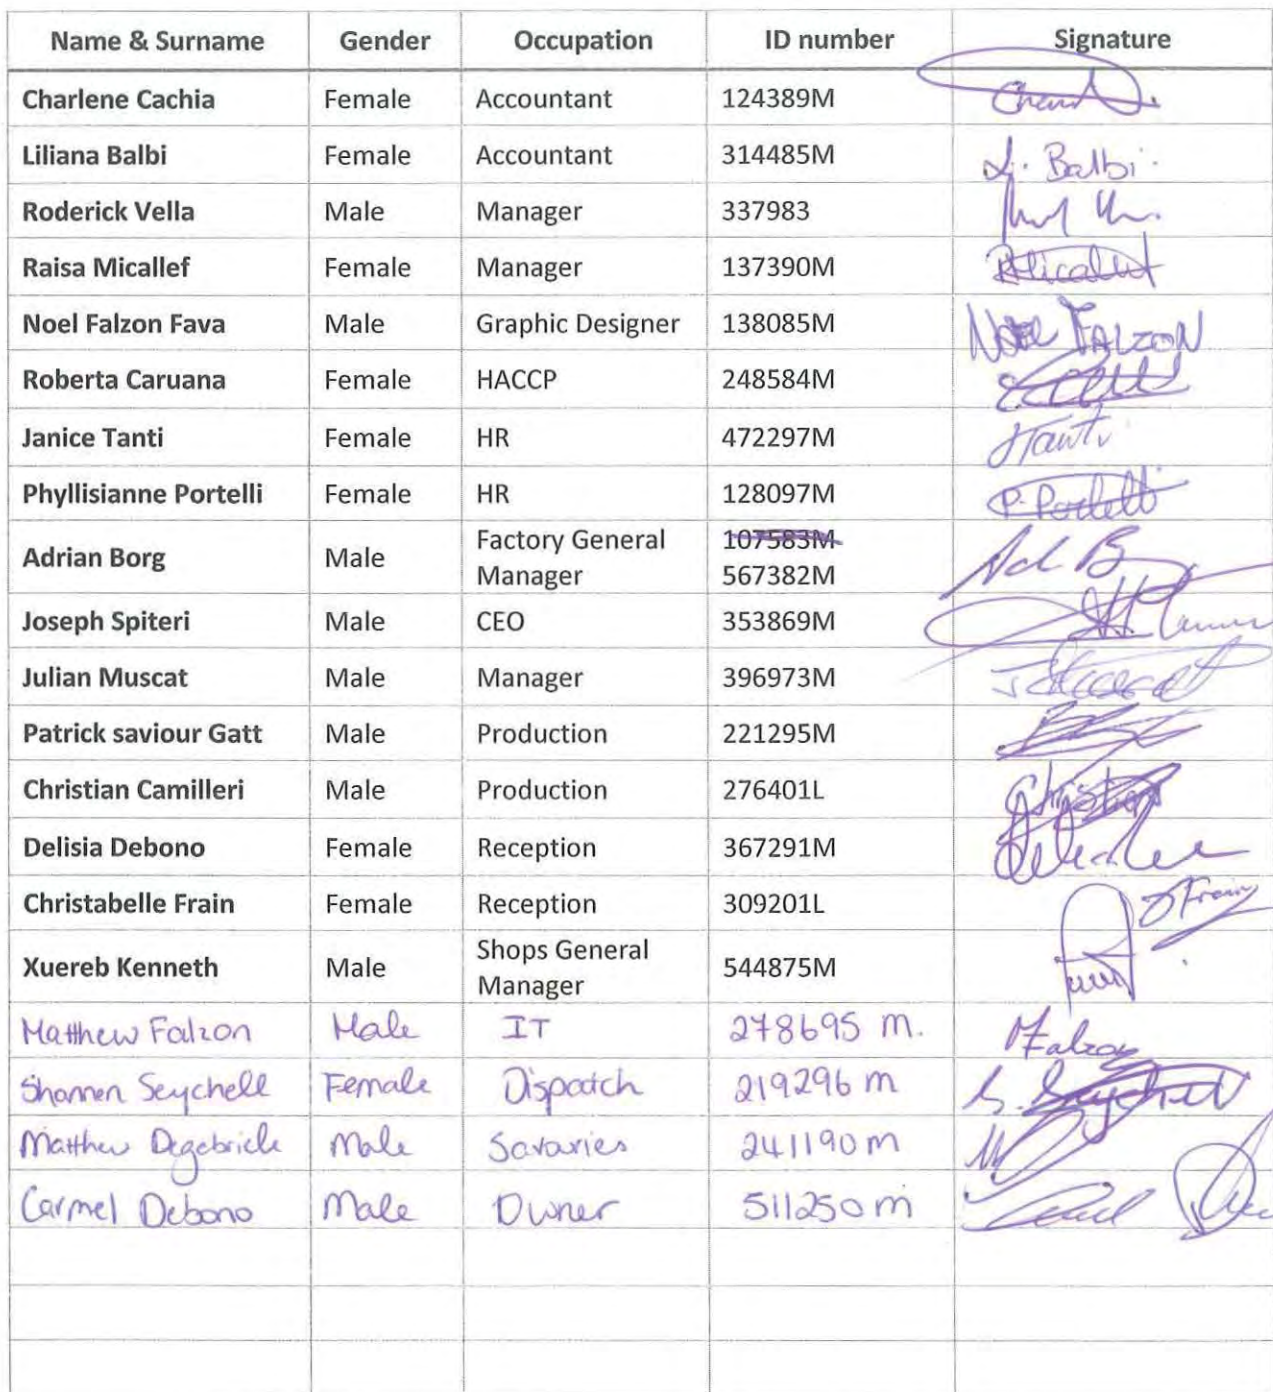 Name & Surname Gender Occupation ID number Signature
Charlene Cachia Female Accountant 124389M
Liliana Balbi Female Accountant 314485M L. Balbi
Roderick Vella Male Manager 337983
Raisa Micallef Female Manager 137390M RMicallef
Noel Falzon Fava Male Graphic Designer 138085M NOEL FALZON
Roberta Caruana Female HACCP 248584M
Janice Tanti Female HR 472297M JTanti
Phyllisianne Portelli Female HR 128097M P. Portelli
Adrian Borg Male Factory General Manager 107583M 567382M Ad B
Joseph Spiteri Male CEO 353869M
Julian Muscat Male Manager 396973M J Muscat
Patrick saviour Gatt Male Production 221295M
Christian Camilleri Male Production 276401L Christian
Delisia Debono Female Reception 367291M
Christabelle Frain Female Reception 309201L CFrain
Xuereb Kenneth Male Shops General Manager 544875M
Matthew Falzon Male IT 278695 M. MFalzon
Shannen Seychell Female Dispatch 219296 m S. Seychell
Matthew Degabriele Male Savaries 241190m
Carmel Debono Male Owner 511250m